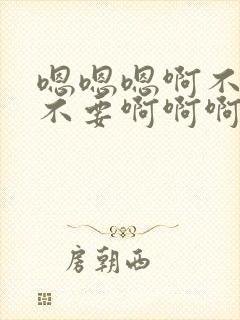 嗯嗯嗯啊不
不要啊啊啊
房朝西